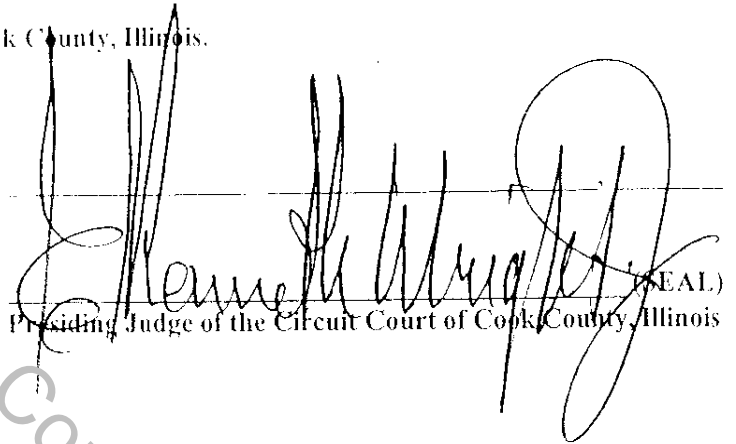 k County, Illinois.
E Kenneth Wright Jr
(SEAL)
Presiding Judge of the Circuit Court of Cook County, Illinois
Co